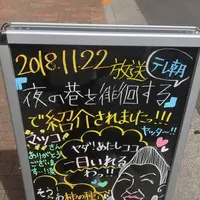 2018.11.22 放送 テレ朝
"夜の巷を徘徊する"
で紹介されましたっ!!!
ヤッター!!
マツコ
さん
ありがとう
ございま
す!!
ヤダ!あたしココ
一日いれる
わっ!!